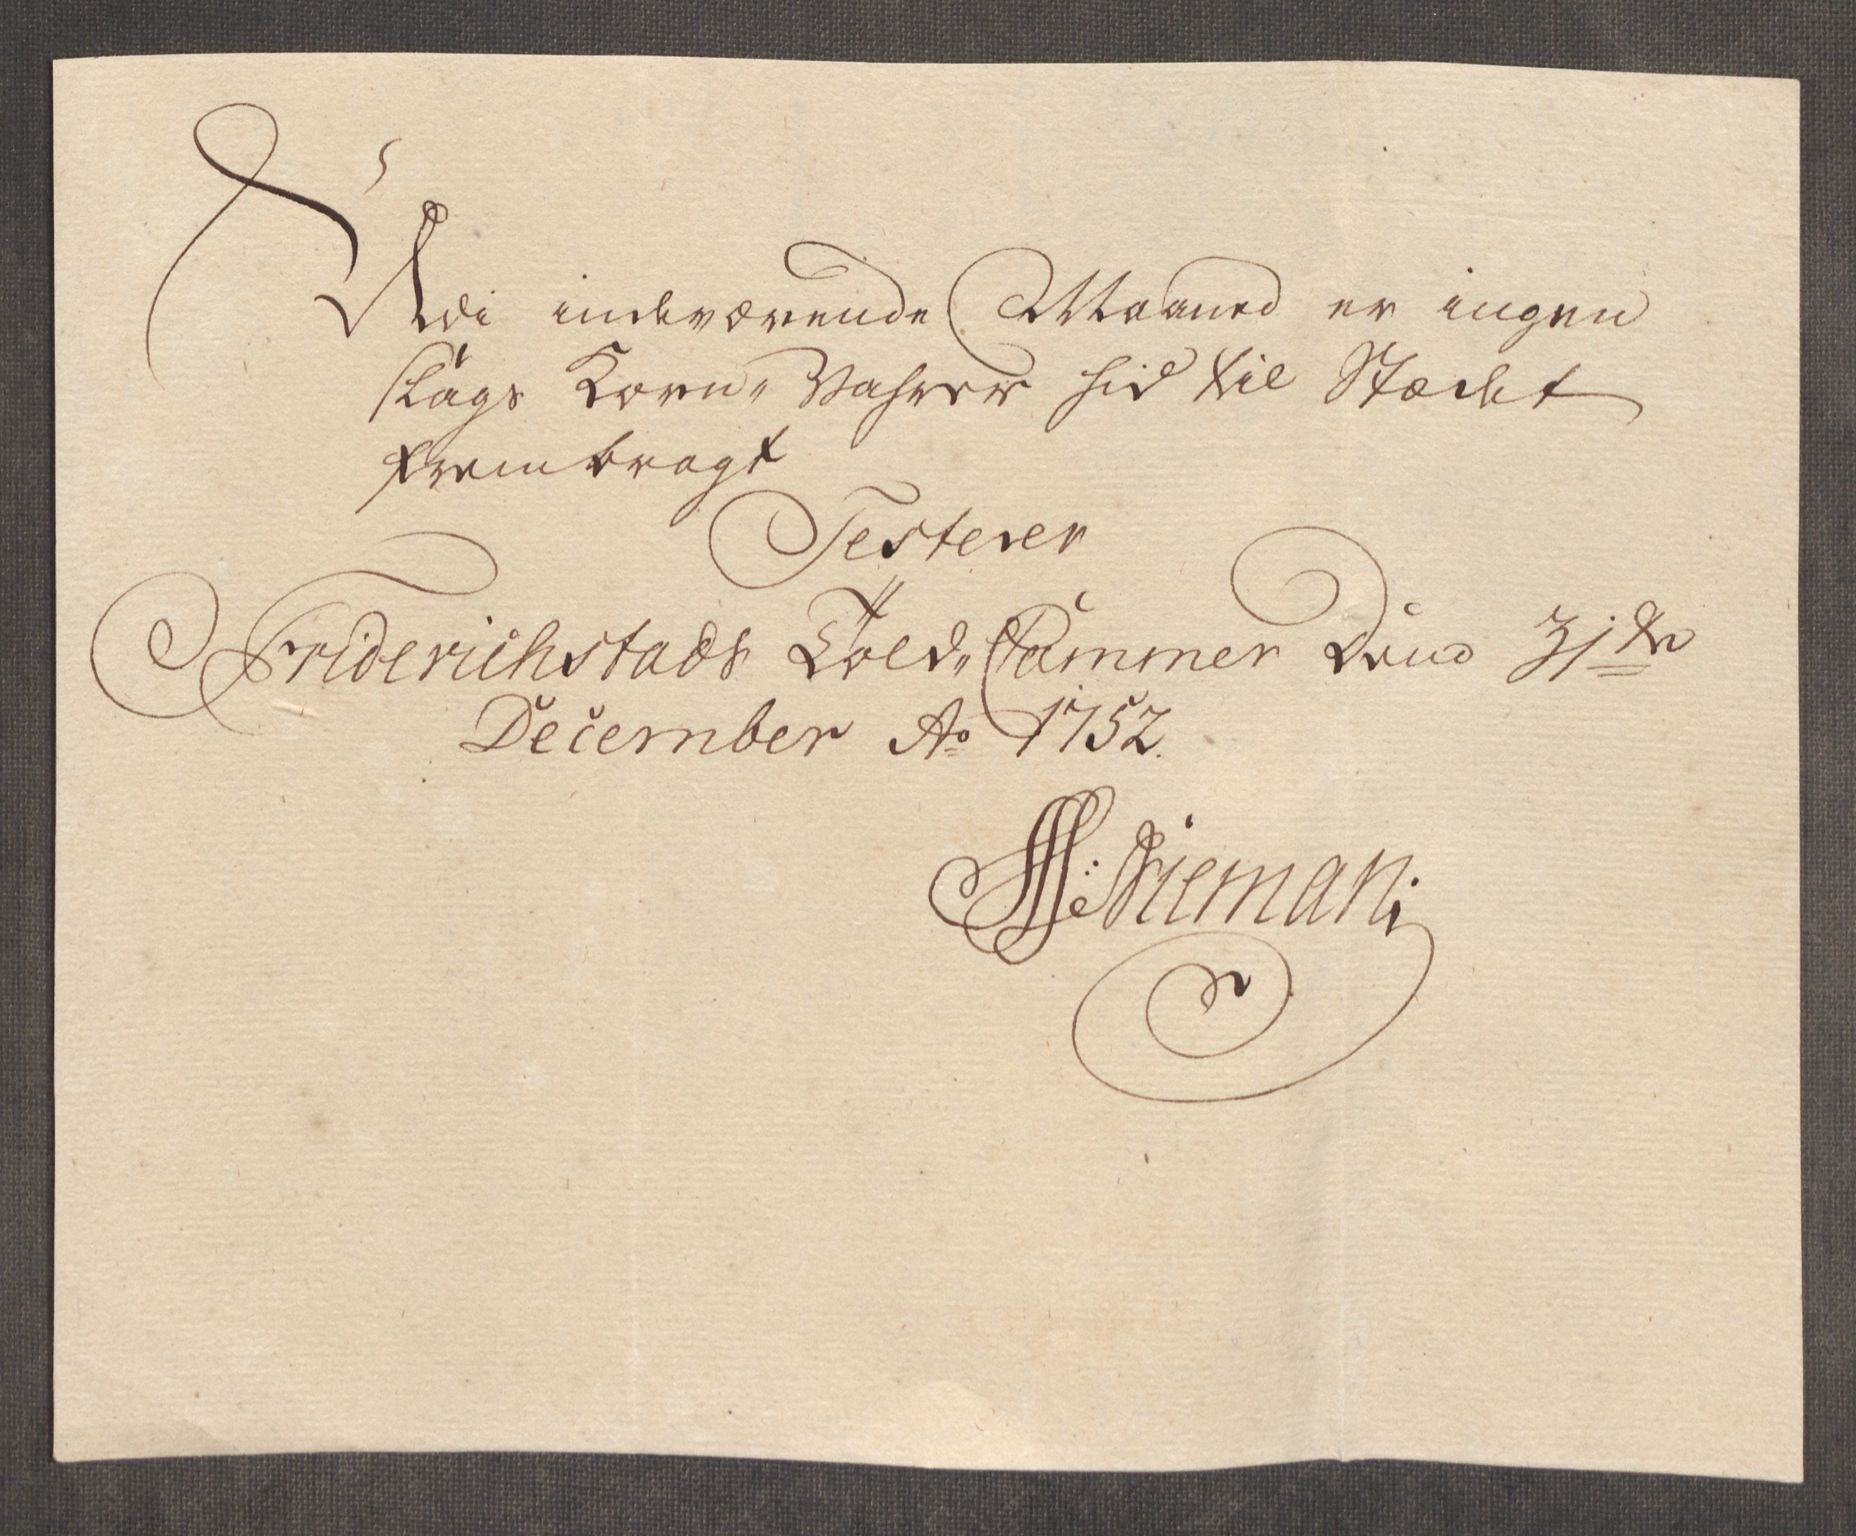 Udi indeværende Maaned er ingen
slags Korn-Vahrer hid til Stædet
frembragt
Testerer
Friderichstads Told-Cammer Dend 31te
December Ao 1752.
Nieman